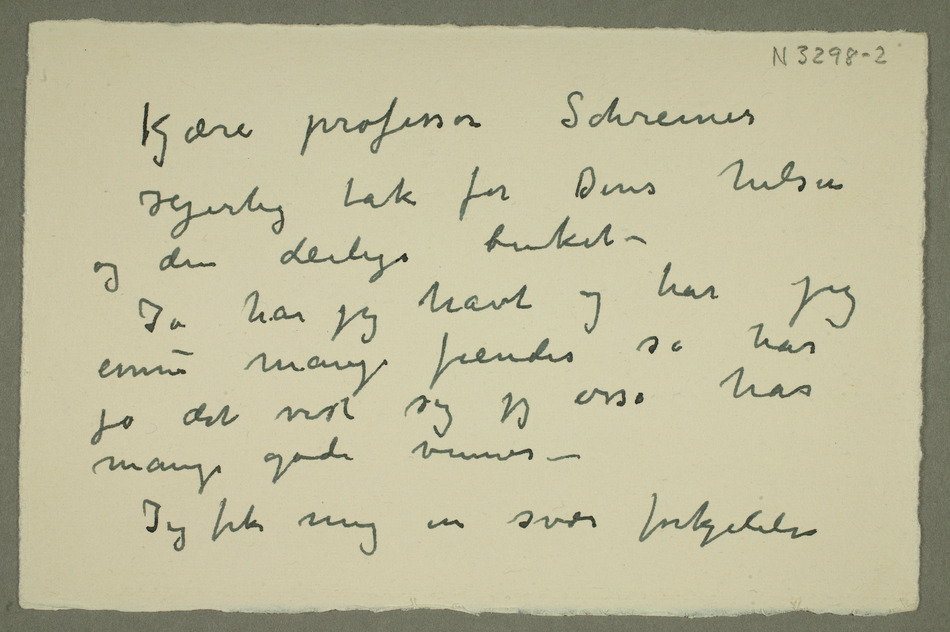 N 3298-2
Kjære professor Schreiner
Hjertlig tak for Deres hilsen
og den deilige buket –
Ja har jeg havt og har jeg
ennu mange fiender så har
jo det vist sig jeg også har
mange gode venner –
Jeg fik mig en svær forkjølelse